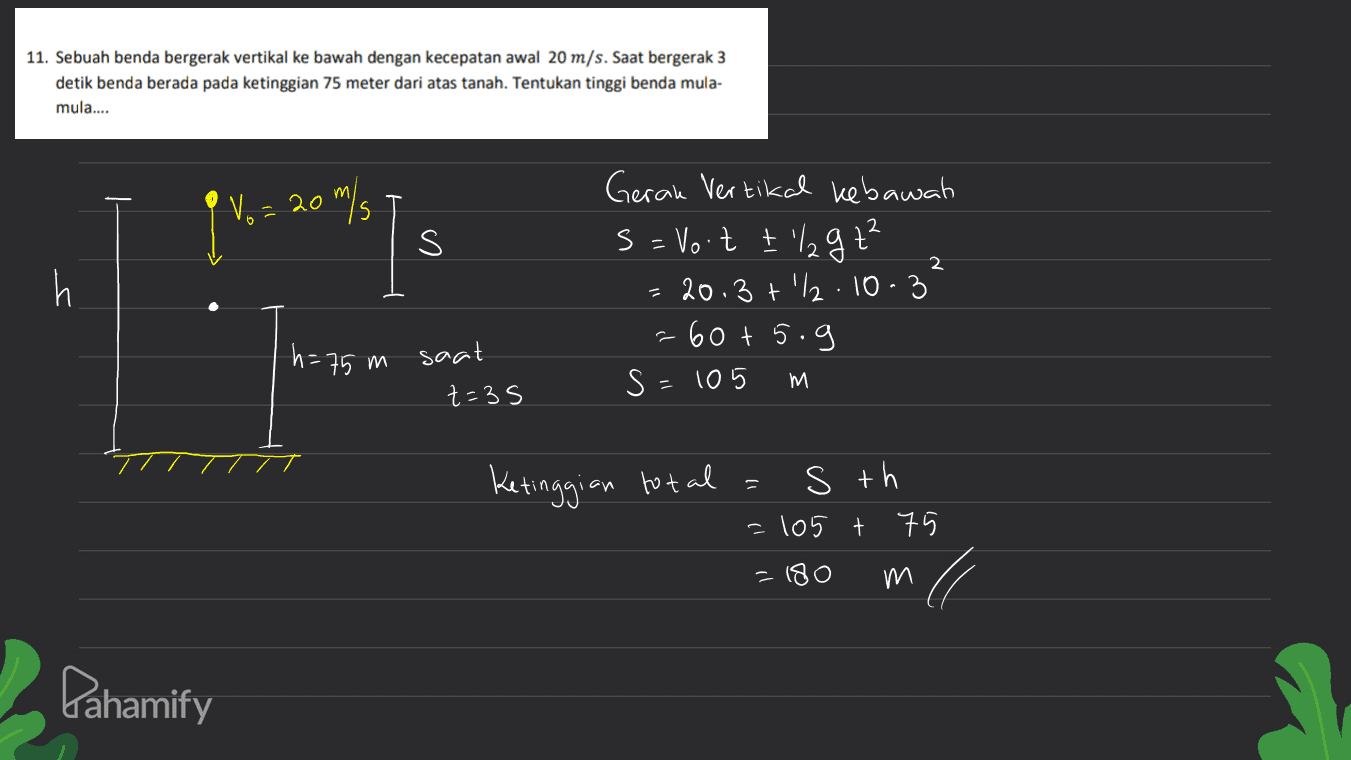 11. Sebuah benda bergerak vertikal ke bawah dengan kecepatan awal 20 m/s. Saat bergerak 3
detik benda berada pada ketinggian 75 meter dari atas tanah. Tentukan tinggi benda mula-
mula....
V₀ = 20 m/s
S
h
h = 75 m saat
t = 3 s
Gerak Vertikal kebawah
S = V₀.t ± 1/2 g t²
= 20.3 + 1/2 . 10 . 3²
= 60 + 5.9
S = 105 m
Ketinggian total = S + h
= 105 + 75
= 180 m //
Pahamify